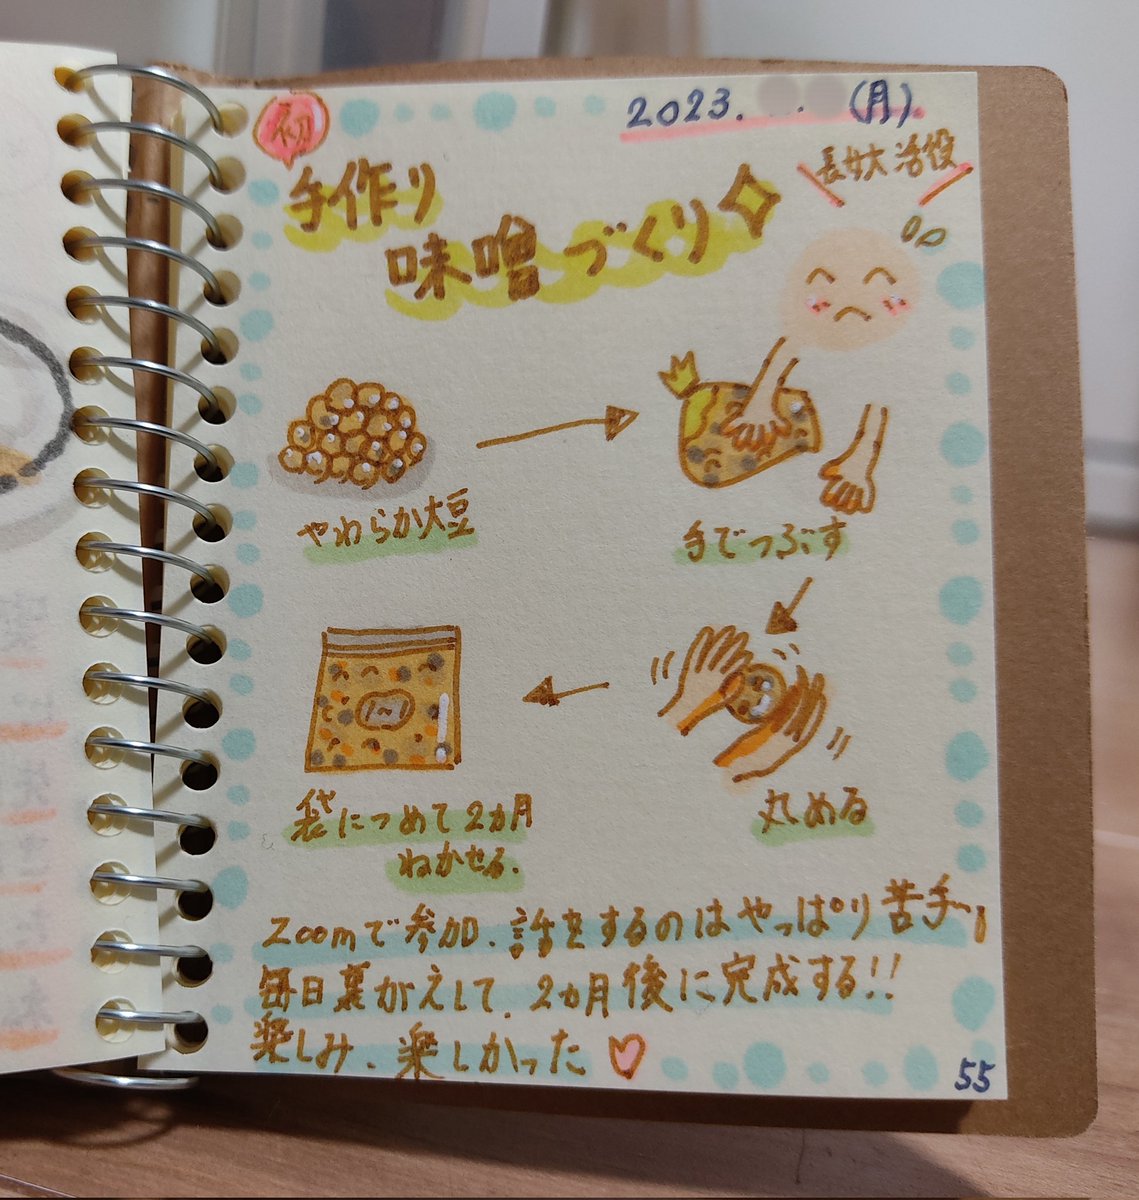 初
2023. (月).
手作り
味噌づくり
長女大活役
やわらか大豆
手でつぶす
丸める
袋につめて2ヵ月
ねかせる.
Zoomで参加、話をするのはやっぱり苦手。
毎日裏がえして、2ヵ月後に完成する!!
楽しみ、楽しかった♡
55